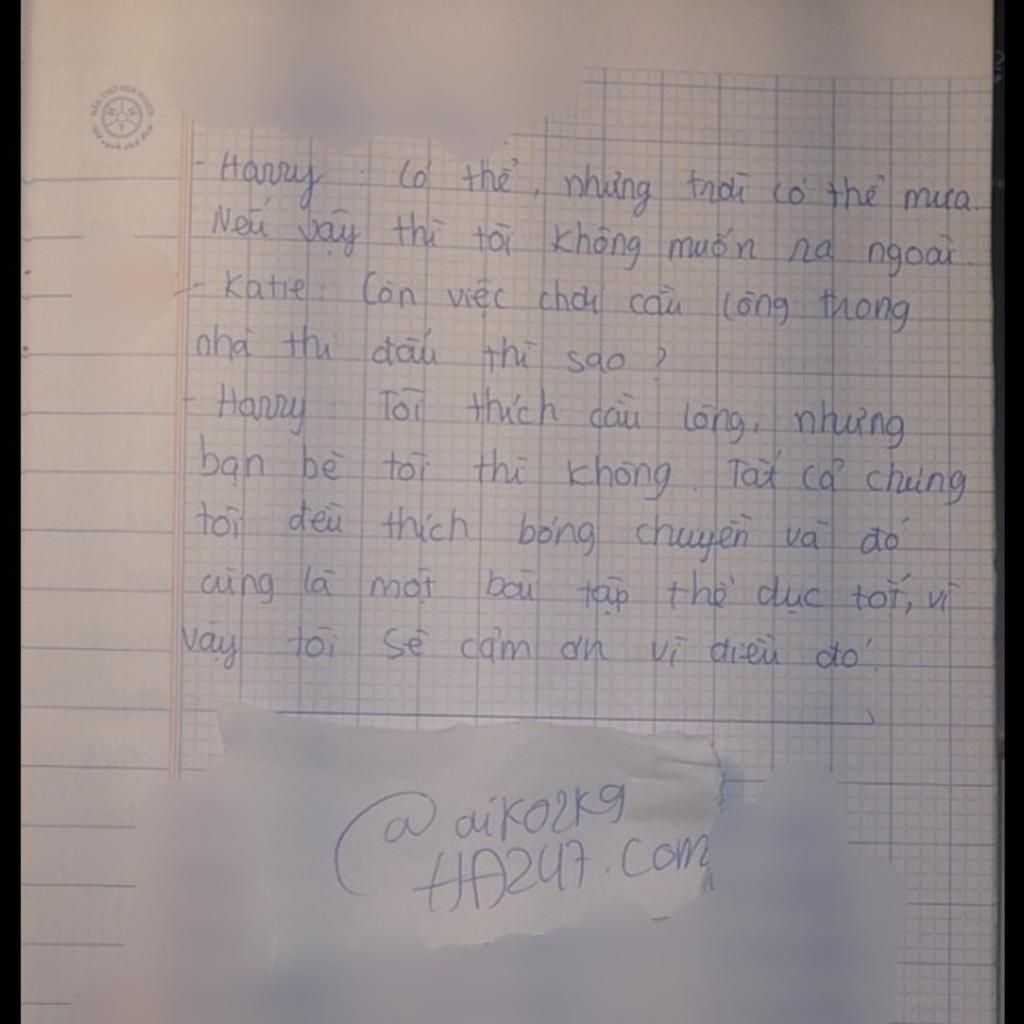 - Harry: Có thể, nhưng trời có thể mưa.
Nếu vậy thì tôi không muốn ra ngoài.
- Katie: Còn việc chơi cầu lông trong
nhà thi đấu thì sao?
- Harry: Tôi thích cầu lông, nhưng
bạn bè tôi thì không. Tất cả chúng
tôi đều thích bóng chuyền và đó
cũng là một bài tập thể dục tốt, vì
vậy tôi sẽ cảm ơn vì điều đó.
@aiko2k9
HA247.com